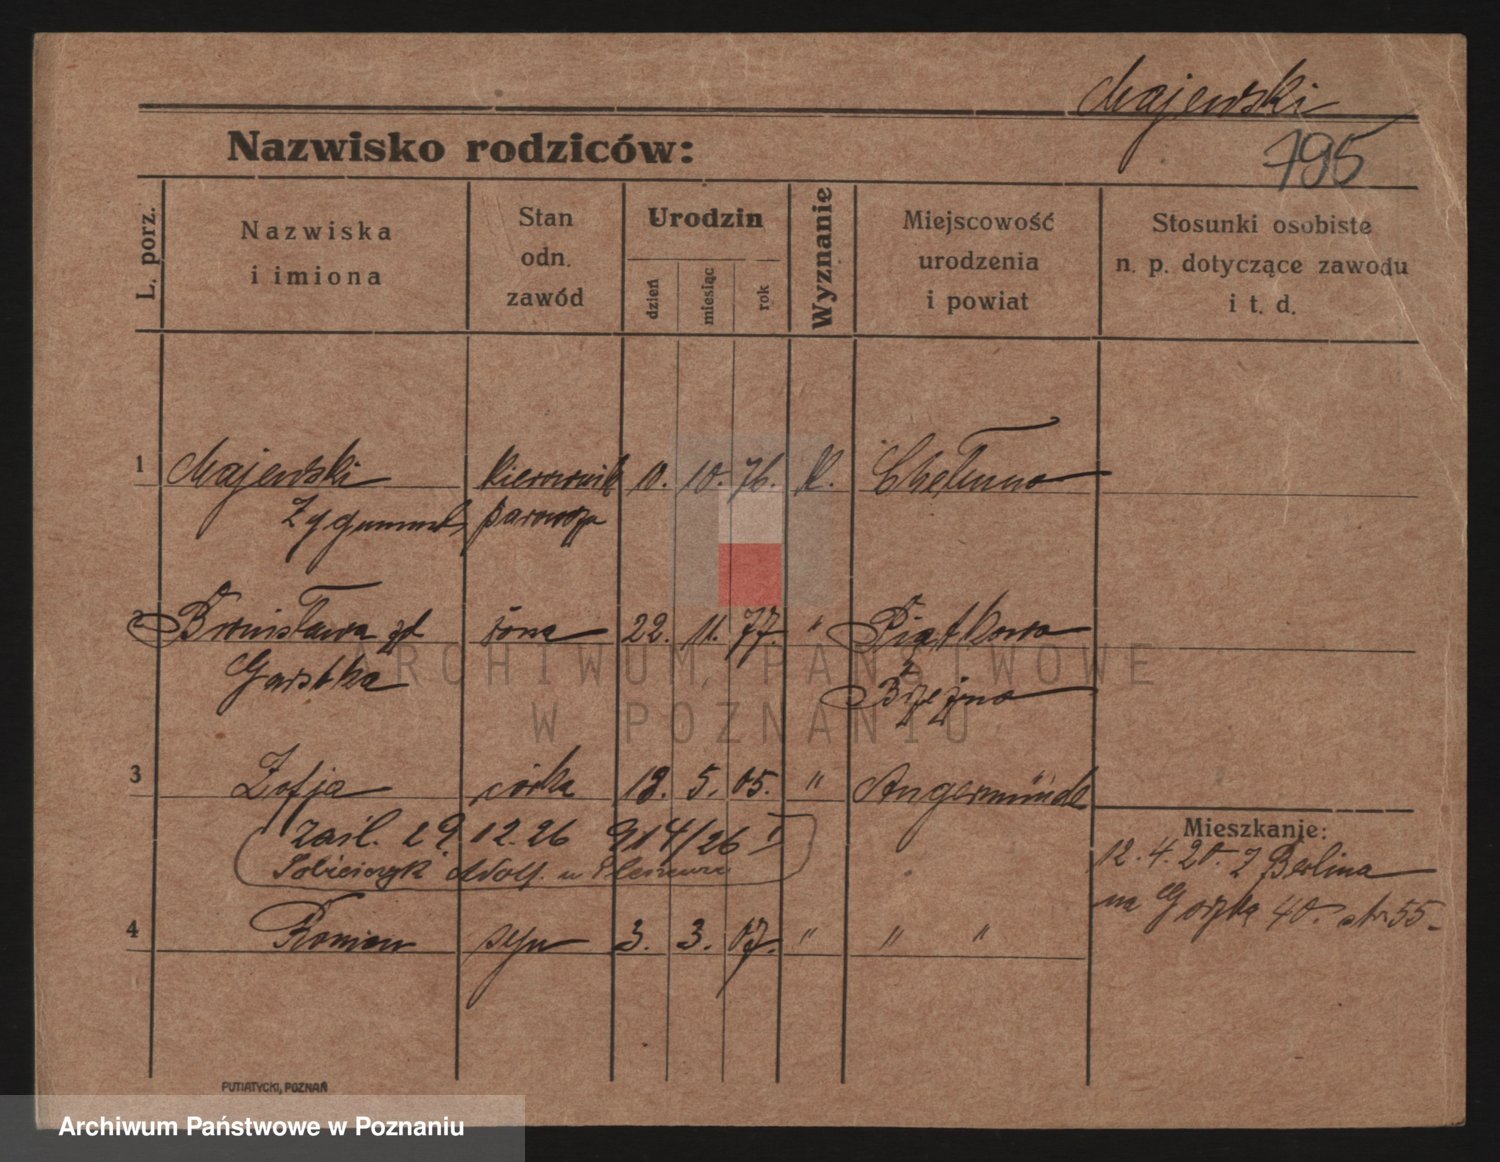 Majewski
795
Nazwisko rodziców:
L. porz.
Nazwiska
i imiona
Stan
odn.
zawód
Urodzin
dzień
miesiąc
rok
Wyznanie
Miejscowość
urodzenia
i powiat
Stosunki osobiste
n. p. dotyczące zawodu
i t. d.
1 Majewski kierownik 10. 10. 76. k. Chełmno
Zygmunt parowozu
2 Bronisława żona 22. 11. 77. " Piątkowo
Garstka Brzeźno
3 Zofja córka 18. 5. 05. " Angermünde
zaśl. 29 12.26 914/26 I
Adolf. w
4 Roman syn 3. 3. 07. " " "
Mieszkanie:
12.4.20. z Berlina
na 40. str 55
ARCHIWUM PAŃSTWOWE
W POZNANIU
PUTIATYCKI, POZNAŃ
Archiwum Państwowe w Poznaniu